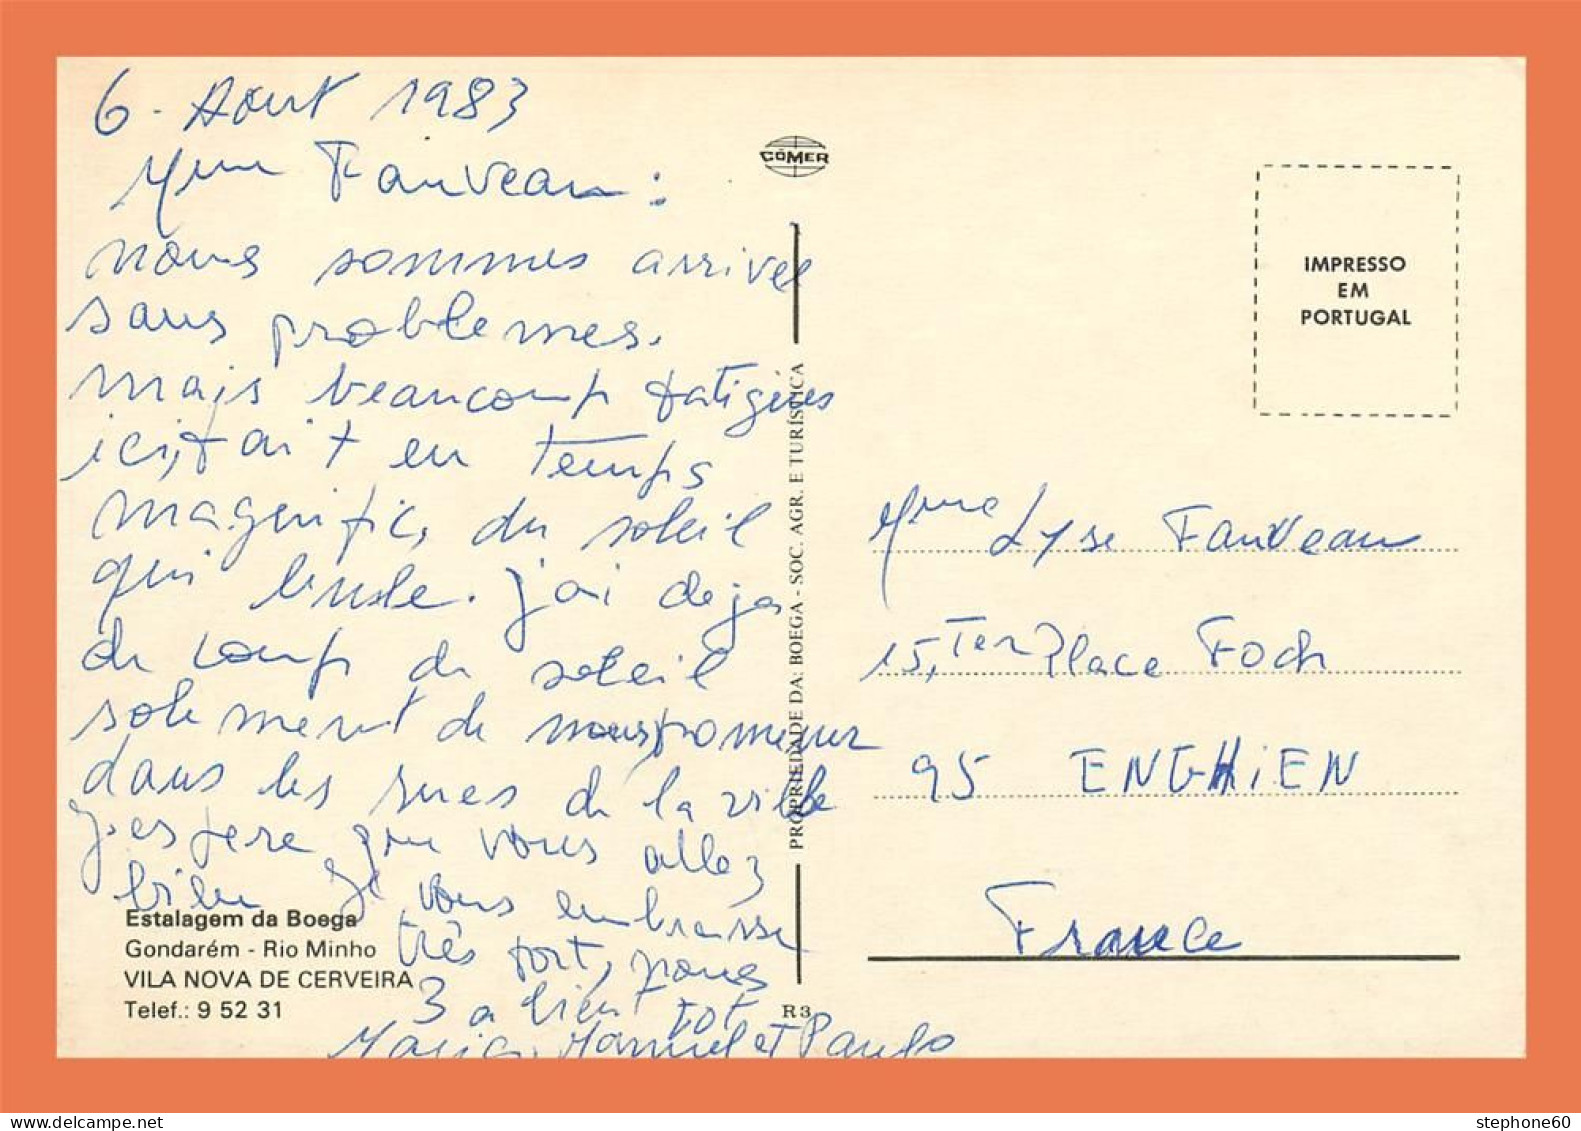 6. Aout 1983
Mme Fauveau :
nous sommes arrivee
sans problemes.
mais beaucoup fatigues
ici, fait en temps
magnific, du soleil
qui brule. j'ai deja
du coup de soleil
solement de nous promener
dans les rues de la ville
j'espere que vous allez
bien Je vous embrasse
très fort, nous
3 a bientot
Maria, Manuel et Paulo
Estalagem da Boega
Gondarém - Rio Minho
VILA NOVA DE CERVEIRA
Telef.: 9 52 31
CÔMER
PROPRIEDADE DA: BOEGA - SOC. AGR. E TURÍSTICA
R 3
IMPRESSO
EM
PORTUGAL
Mme Lyse Fauveau
15, Ter Place Foch
95 ENGHIEN
France
stephone60